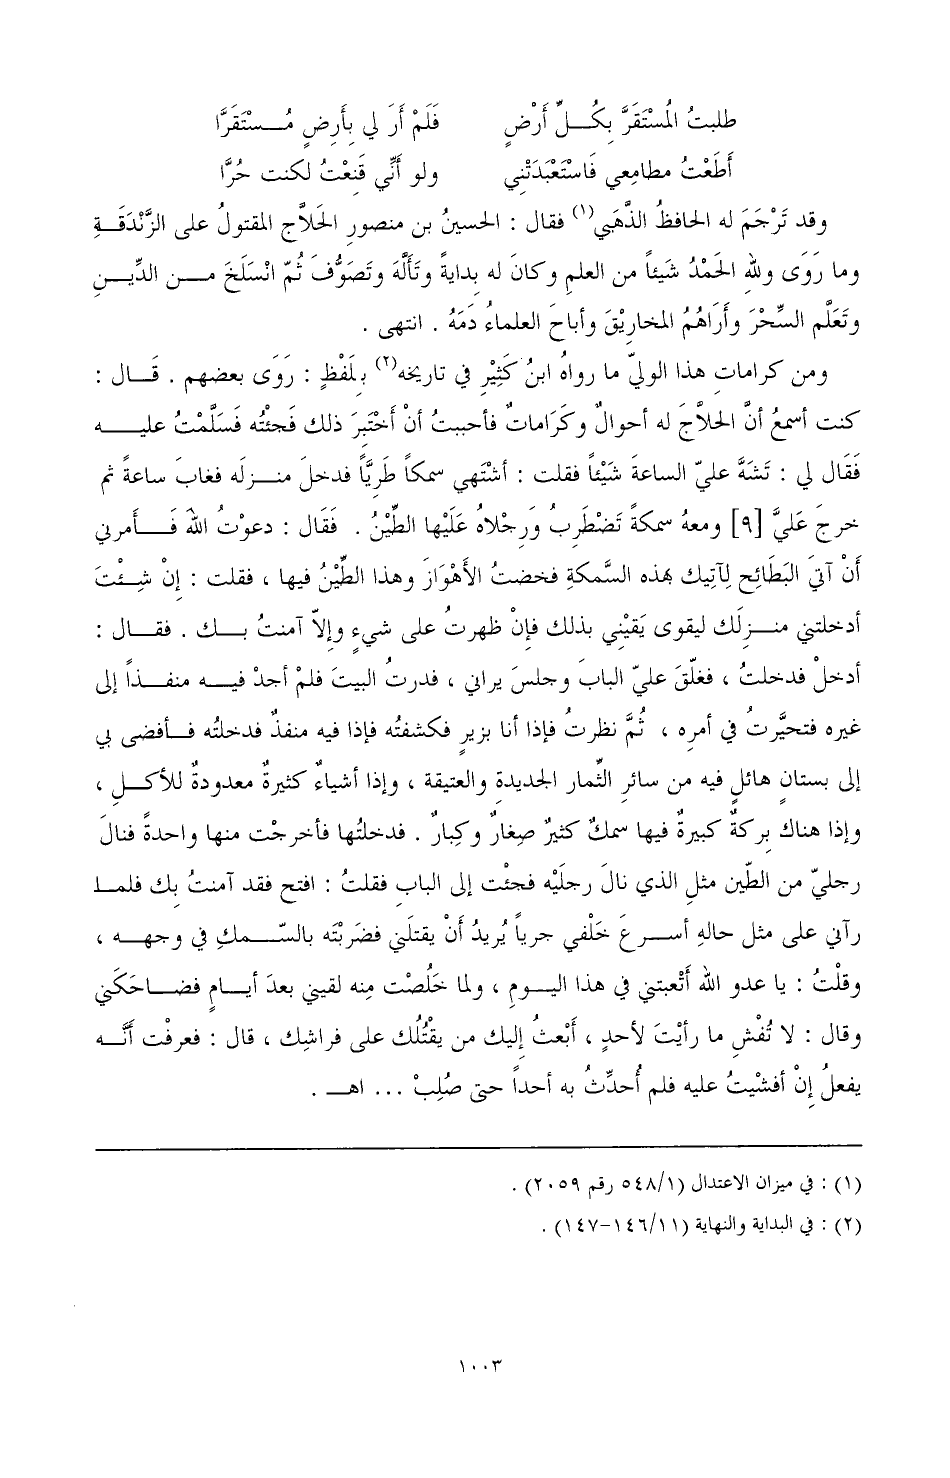 طلبتُ المُسْتَقَرَّ بِكُــلِّ أَرْضٍ فَلَمْ أَرَ لي بِأَرضٍ مُــسْتَقَرَّا
أَطَعْتُ مطامِعي فَاسْتَعْبَدَتْنِي ولو أَنِّي قَنِعْتُ لكنت حُرَّا
وقد تَرْجَمَ له الحافظُ الذَّهَبي(١) فقال : الحسينُ بن منصورِ الحَلاَّج المقتولُ على الزَّنْدَقَــةِ
وما رَوَى ولله الحَمْدُ شَيئاً من العلمِ وكانَ له بدايةً وتَأَلَّهَ وتَصَوُّفَ ثُمّ انْسَلَخَ مــن الدِّيــنِ
وتَعَلَّم السِّحْرَ وأَرَاهُمُ المخاريْقَ وأباحَ العلماءُ دَمَهُ . انتهى .
ومن كرامات هذا الوليّ ما رواهُ ابنُ كَثِيْرٍ في تاريخه(٢) بِلَفْظٍ : رَوَى بعضهم . قَــال :
كنت أسمعُ أنَّ الحلاَّجَ له أحوالٌ وكَرَاماتٌ فأحببت أنْ أَخْتَبِرَ ذلك فَجئتُه فَسَلَّمْتُ عليــه
فَقَال لي : تَشَهَّ عليّ الساعةَ شَيْئاً فقلت : أشْتَهي سمكاً طَرِيَّاً فدخلَ منــزلَه فغابَ ساعةً ثم
خرجَ عَليَّ [٩] ومعهُ سمكةً تَضْطَرِبُ ورَجْلاهُ عَلَيْها الطِّيْنُ . فَقَال : دعوْتُ اللهَ فَــأمرني
أَنْ آتيَ البَطَائِح لِآتيك بهذه السَّمكةِ فخضتُ الأهْوَازَ وهذا الطِّيْنُ فيها ، فقلت : إنْ شِــئْتَ
أدخلتني منــزلَك ليقوى يَقيْنِي بذلك فإنْ ظهرتُ على شيءٍ وإلاّ آمنتُ بــك . فقــال :
أدخلْ فدخلتُ ، فغلّقَ عليّ البابَ وجلسَ يراني ، فدرتُ البيتَ فلمْ أجدْ فيــه منفــذاً إلى
غيره فتحيَّرتُ في أمره ، ثُمَّ نظرتُ فإذا أنا بزيرٍ فكشفتُه فإذا فيه منفذٌ فدخلتُه فــأفضى بي
إلى بستانٍ هائلٍ فيه من سائرِ الثِّمار الجديدة والعتيقة ، وإذا أشياءٌ كثيرةٌ معدودةٌ للأكــلِ ،
وإذا هناك بركةٌ كبيرةٌ فيها سمكٌ كثيرٌ صِغارٌ وكِبارٌ . فدخلتُها فأخرجْت منها واحدةً فنالَ
رجليّ من الطّينِ مثلِ الذي نالَ رجلَيْه فجئت إلى البابِ فقلتُ : افتح فقد آمنتُ بك فلمــا
رآني على مثل حالهِ أســرعَ خَلْفي جرياً يُريدُ أنْ يقتلَني فضَرَبْتَه بالسّــمكِ في وجهــه ،
وقلْتُ : يا عدو الله أَتْعبتني في هذا اليــومِ ، ولما خَلُصْت مِنه لقيني بعدَ أيــامٍ فضــاحكَني
وقال : لا تُفْشِ ما رأيْتَ لأحدٍ ، أَبْعثُ إليك من يقْتُلُك على فراشِك ، قال : فعرفْت أنَّــه
يفعلُ إنْ أفشيْتُ عليه فلم أُحدِّثُ به أحداً حتى صُلِبْ ... اهــ .
(١) : في ميزان الاعتدال (٥٤٨/١ رقم ٢٠٥٩) .
(٢) : في البداية والنهاية (١٤٦/١١-١٤٧) .
١٠٠٣